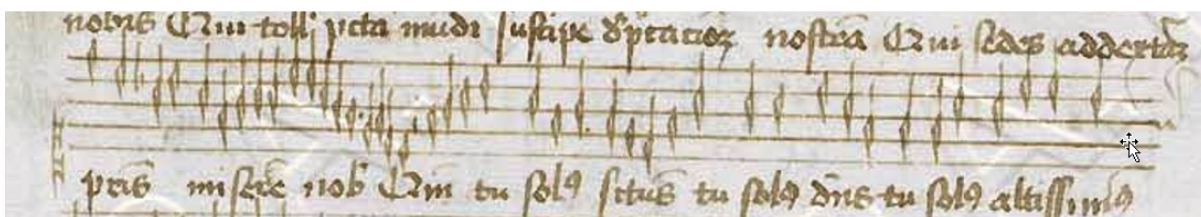 nobis Qui toll' pcta mudi suscipe dp̄cacioꝫ nostrā Qui sedes ad dextaꝫ
pris miserē nob Qm tu solꝰ sctus tu solꝰ dn̄s tu solꝰ altissimꝰ